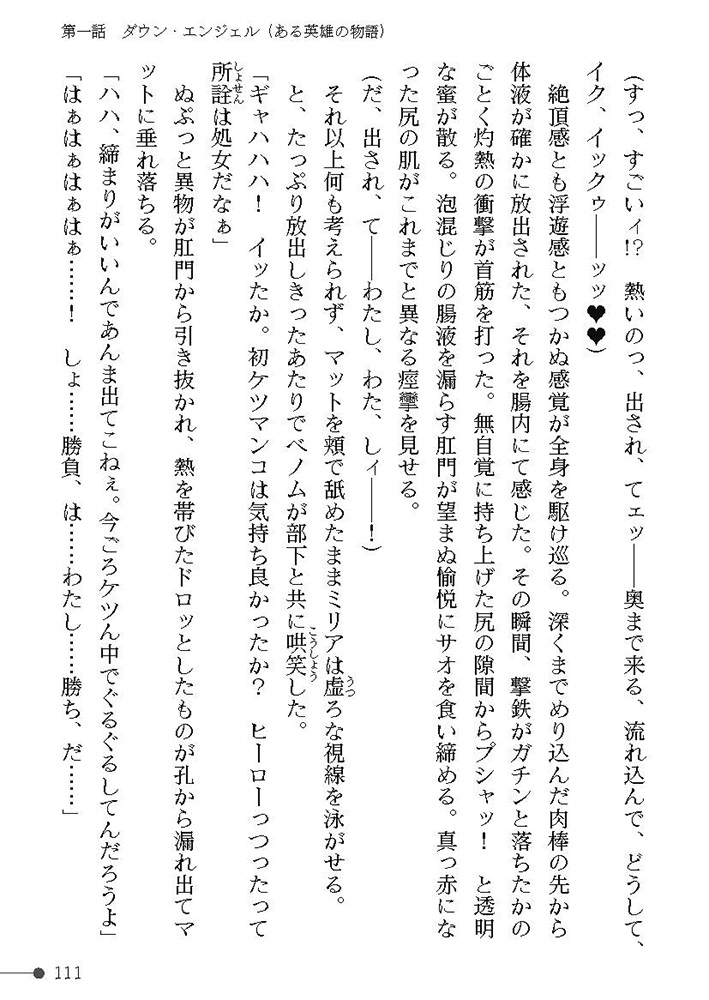 第一話　ダウン・エンジェル（ある英雄の物語）
（すっ、すごいィ!?　熱いのっ、出され、てェッ――奥まで来る、流れ込んで、どうして、
イク、イックゥ――ッッ♥♥）
　絶頂感とも浮遊感ともつかぬ感覚が全身を駆け巡る。深くまでめり込んだ肉棒の先から
体液が確かに放出された、それを腸内にて感じた。その瞬間、撃鉄がガチンと落ちたかの
ごとく灼熱の衝撃が首筋を打った。無自覚に持ち上げた尻の隙間からプシャッ！　と透明
な蜜が散る。泡混じりの腸液を漏らす肛門が望まぬ愉悦にサオを食い締める。真っ赤にな
った尻の肌がこれまでと異なる痙攣を見せる。
（だ、出され、て――わたし、わた、しィ――！）
　それ以上何も考えられず、マットを頬で舐めたままミリアは虚ろな視線を泳がせる。
　と、たっぷり放出しきったあたりでベノムが部下と共に哄笑した。
「ギャハハハ！　イッたか。初ケツマンコは気持ち良かったか？　ヒーローっつったって
所詮は処女だなぁ」
　ぬぷっと異物が肛門から引き抜かれ、熱を帯びたドロッとしたものが孔から漏れ出てマ
ットに垂れ落ちる。
「ハハ、締まりがいいんであんま出てこねぇ。今ごろケツん中でぐるぐるしてんだろうよ」
「はぁはぁはぁはぁ……！　しょ……勝負、は……わたし……勝ち、だ……」
111